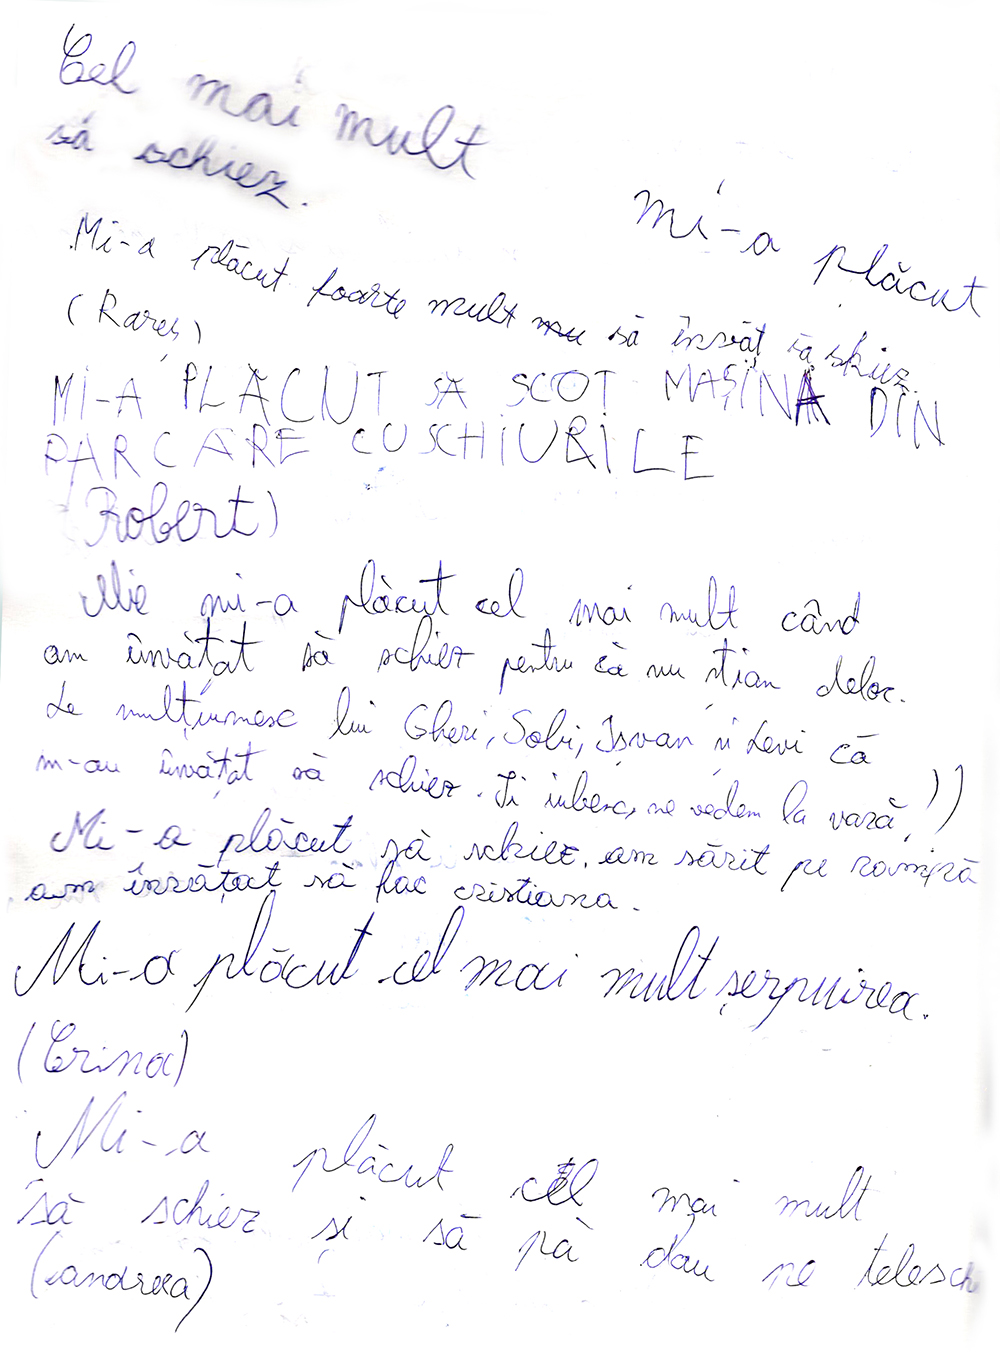 Cel mai mult
mi-a plăcut
să schiez.
Mi-a plăcut foarte mult mu să învăț să skiez.
(Rareș)
MI-A PLĂCUT SA SCOT MAȘINA DIN
PARCARE CU SCHIURILE
(Robert)
Mie mi-a plăcut cel mai mult când
am învățat să schiez pentru că nu știam deloc.
Le mulțumesc lui Gheri, Sobi, Isvan și Levi că
m-au învățat să schiez. Ti iubesc, ne vedem la vară!))
Mi-a plăcut să schiez. am sărit pe rampă
am învățat să fac cristiana.
Mi-a plăcut cel mai mult șerpuirea.
(Crina)
Mi-a plăcut cel mai mult
să schiez și să pă dau pe telesch
(andreea)